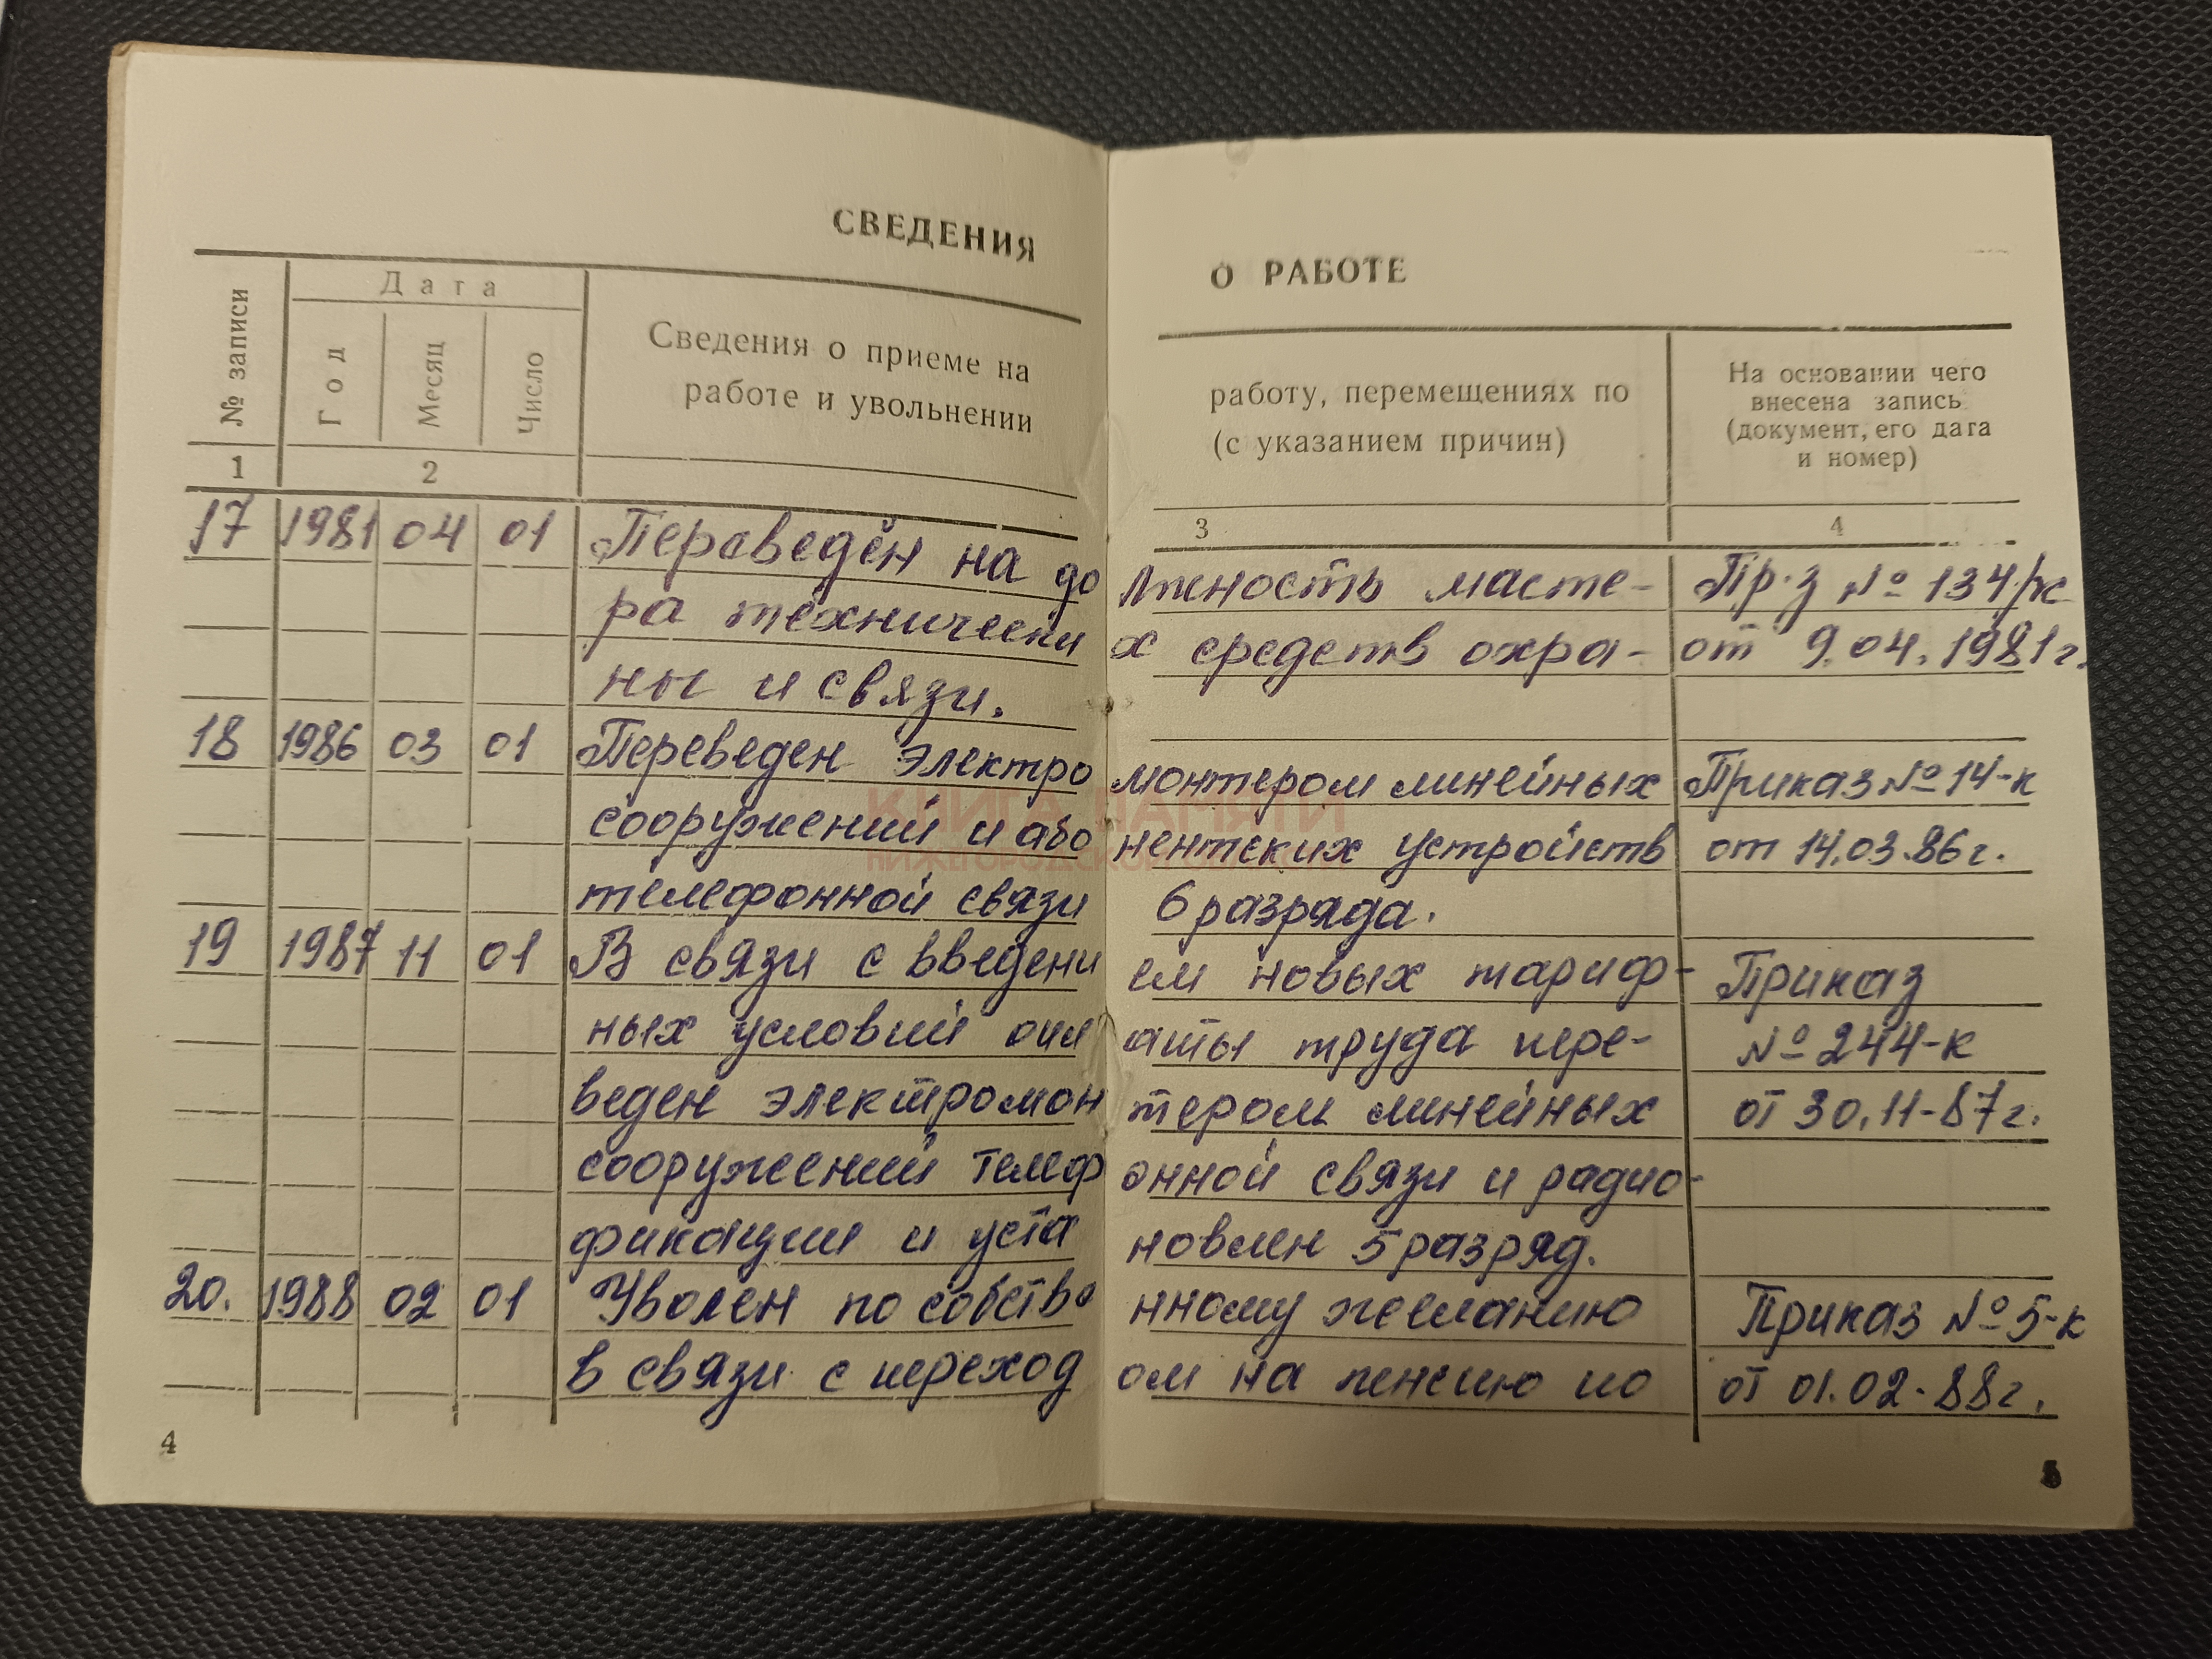 СВЕДЕНИЯ О РАБОТЕ
№ записи
Дата
Год
Месяц
Число
Сведения о приеме на работу, перемещениях по
работе и увольнении (с указанием причин)
На основании чего
внесена запись
(документ, его дата
и номер)
1 2 3 4
17 1981 04 01 Переведён на должность масте- Пр-з № 134/к
ра технических средств охра- от 9.04.1981г.
ны и связи.
18 1986 03 01 Переведен электромонтером линейных Приказ № 14-к
сооружений и абонентских устройств от 14.03.86г.
телефонной связи 6 разряда.
19 1987 11 01 В связи с введением новых тариф- Приказ
ных условий оплаты труда пере- № 244-к
веден электромонтером линейных от 30.11-87г.
сооружений телефонной связи и радио-
фикации и установлен 5 разряд.
20. 1988 02 01 Уволен по собственному желанию Приказ № 5-к
в связи с переходом на пенсию по от 01.02-88г.
4 5
КНИГА ПАМЯТИ
НИЖЕГОРОДСКОЙ ОБЛАСТИ